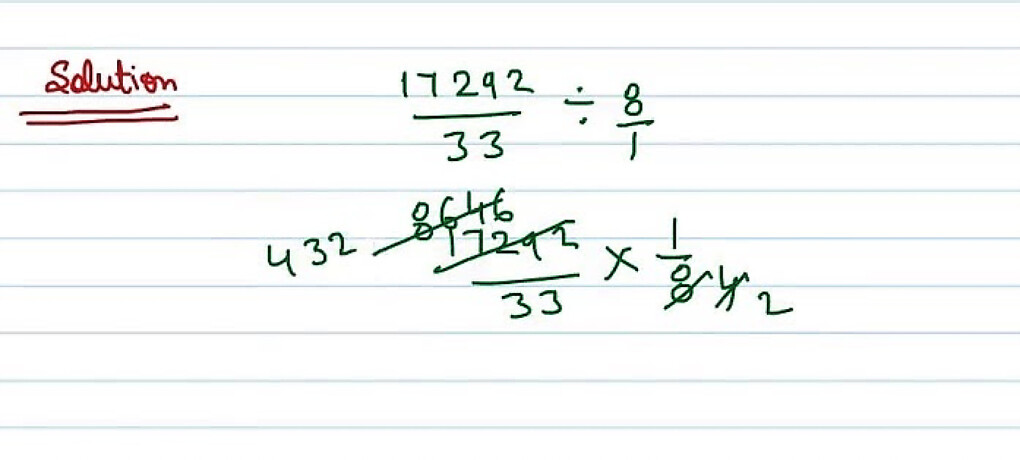 Solution
17292/33 ÷ 8/1
8646
432 17292/33 × 1/8 4 2